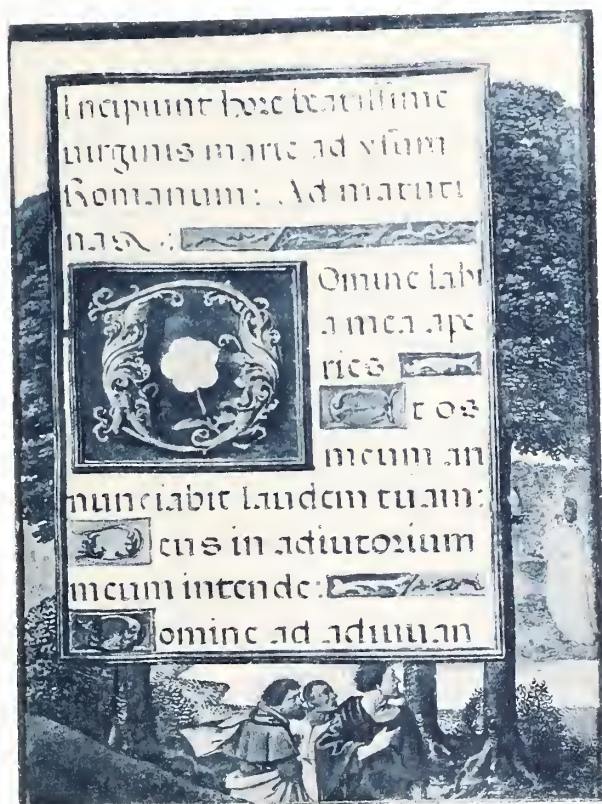 Incipiunt hore beatissime
uirginis marie ad vsum
Romanum: Ad matuti
nas.:
Domine labi
a mea ape
ries
Et os
meum an
nunciabit laudem tuam:
Deus in adiutorium
meum intende:
Domine ad adiuuan